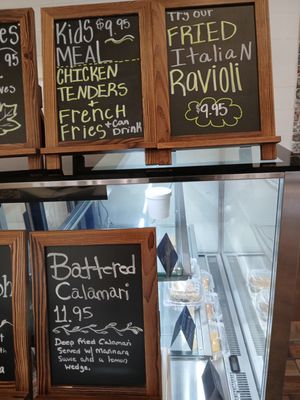 Kids $9.95
MEAL
CHICKEN
TENDERS
+
FRENCH
FRIES + Can
DRINK
Try our
FRIED
ITALIAN
Ravioli
$9.95
Battered
Calamari
11.95
Deep fried Calamari
Served w/ Marinara
Sauce and a lemon
wedge.